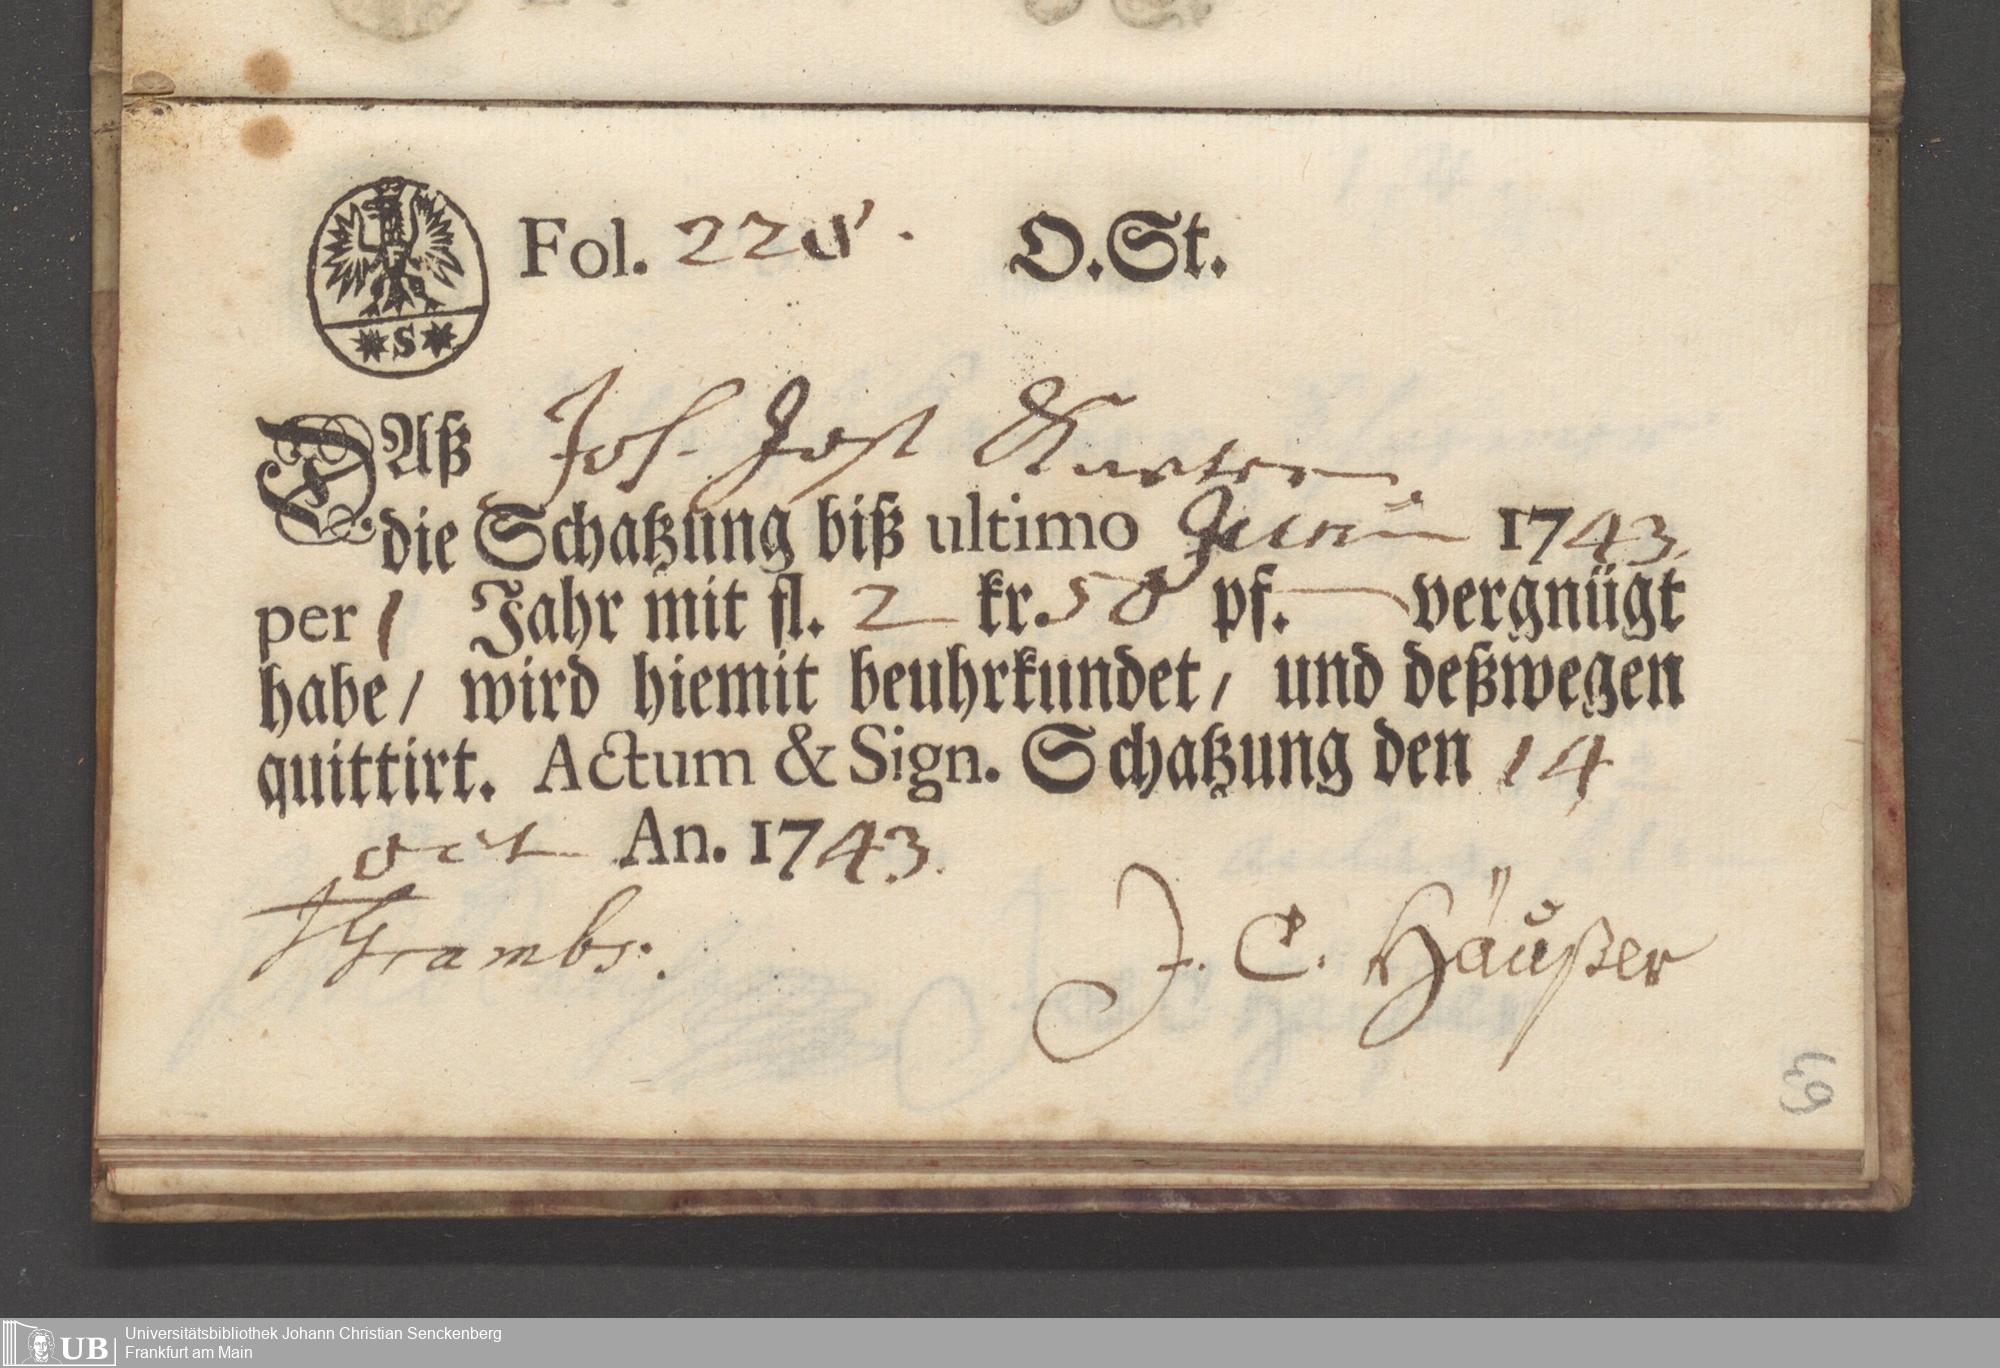 Fol. 228. O.St.
F
S
Daß Joh. Jost
die Schatzung biß ultimo Junii 1743.
per 1 Jahr mit fl. 2 kr. 58 pf. — vergnügt
habe / wird hiemit beuhrkundet / und deßwegen
quittirt. Actum & Sign. Schatzung den 14
oct An. 1743.
J. C. Häußer
UB
Universitätsbibliothek Johann Christian Senckenberg
Frankfurt am Main